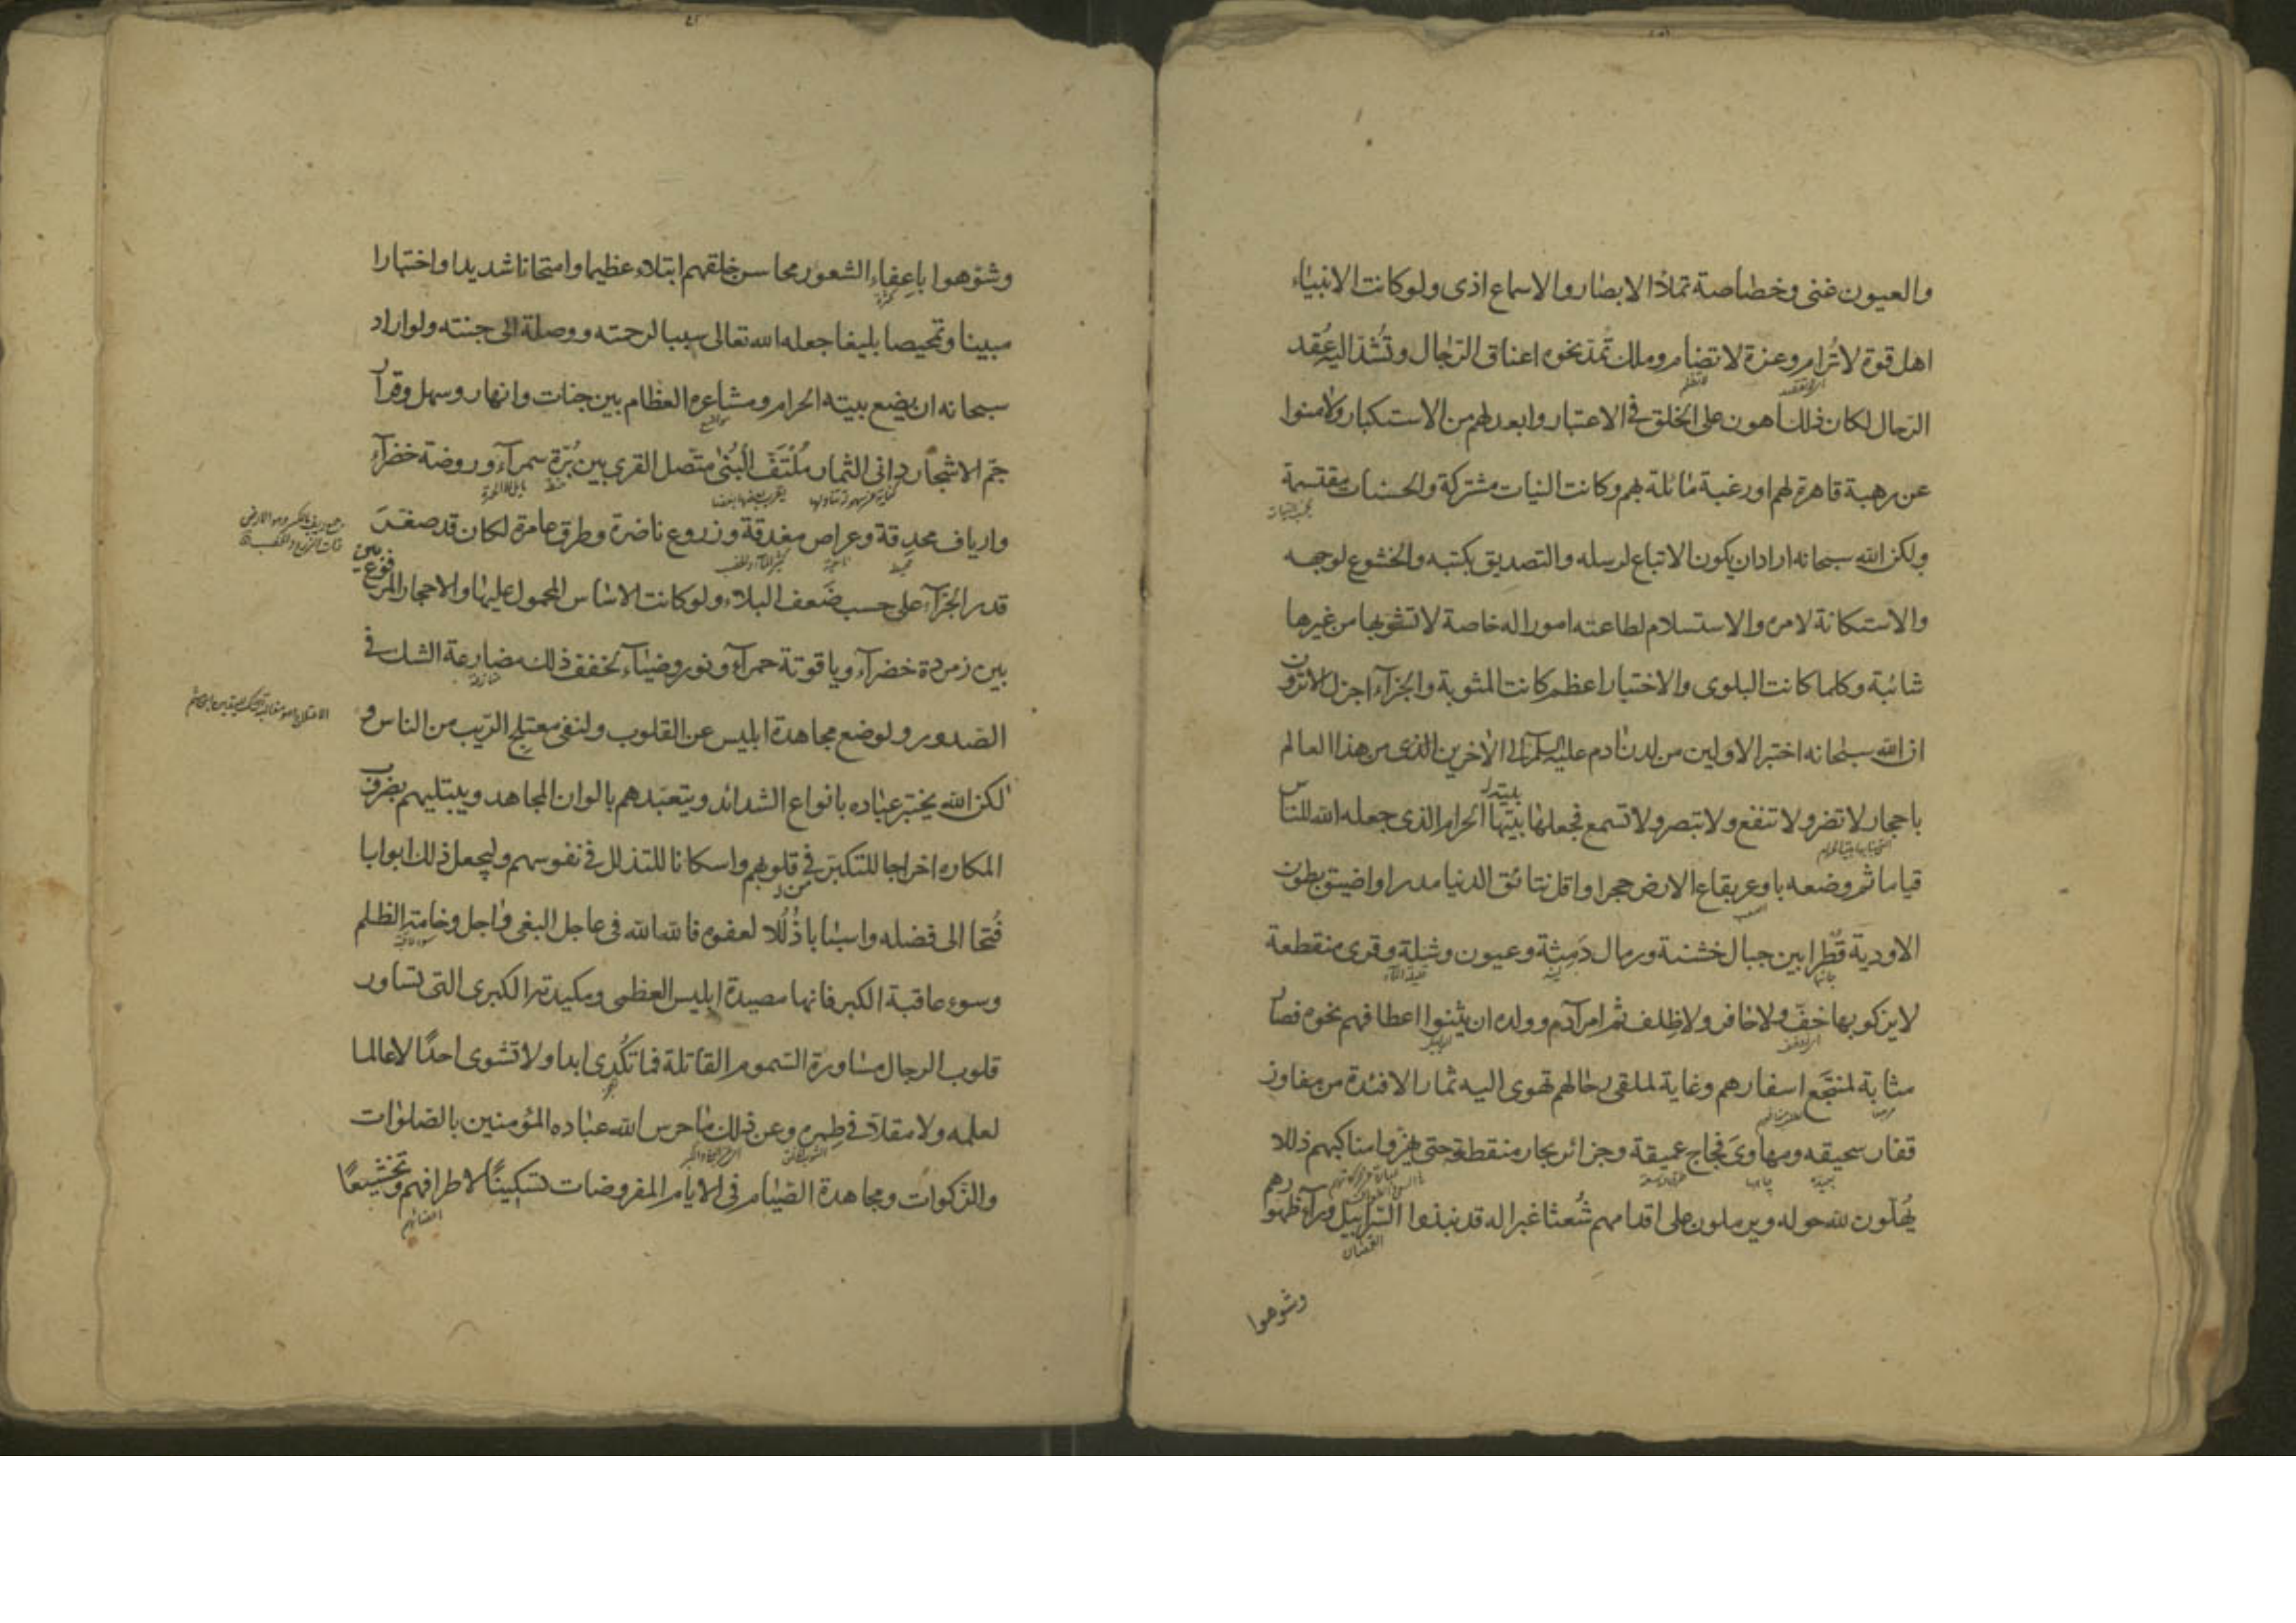 والعيون غنى وخصاصة تملأ الابصار والاسماع اذى ولو كانت الانبياء
اهل قوة لا تُرام وعزة لا تضام وملك تُمدّ نحوه اعناق الرّجال وتُشدّ اليه عُقد
الرّحال لكان ذلك اهون على الخلق في الاعتبار وابعد لهم من الاستكبار ولامنوا
عن رهبة قاهرة لهم او رغبة مائلة بهم وكانت النيات مشتركة والحسنات مقتسمة
ولكن الله سبحانه اراد ان يكون الاتباع لرسله والتصديق بكتبه والخشوع لوجهه
والاستكانة لامره والاستسلام لطاعته امورا له خاصة لا تشوبها من غيرها
شائبة وكلما كانت البلوى والاختبار اعظم كانت المثوبة والجزآء اجزل الا ترون
ان الله سبحانه اختبر الاولين من لدن ادم عليه السلم الى الاخرين الذى من هذا العالم
باحجار لا تضر ولا تنفع ولا تبصر ولا تسمع فجعلها بيتها الحرام الذى جعله الله للناس
قياما ثم وضعه باوعر بقاع الارض حجرا واقل نتائق الدنيا مدرا واضيق بطون
الاودية قطرا بين جبال خشنة ورمال دَمِثة وعيون وشلة وقرى منقطعة
لا يزكو بها خفّ ولا حافر ولا ظِلف ثم امر آدم وولده ان يثنوا اعطافهم نحوه فصار
مثابة لمنتجَع اسفارهم وغاية لملقى رحالهم تهوى اليه ثمار الافئدة من مفاوز
قفار سحيقه ومهاوىَ فجاج عميقة وجزائر بحار منقطعة حتى يهزوا مناكبهم ذللا
يُهلّون لله حوله ويرملون على اقدامهم شُعثا غبرا له قد نبذوا السّرابيل ورآء ظهورهم
القمصان
وشوهوا
وشوّهوا باعفاء الشعور محاسن خلقهم ابتلاء عظيما وامتحانا شديدا واختبارا
مبينا وتمحيصا بليغا جعله الله تعالى سببا لرحمته ووصلة الى جنته ولو اراد
سبحانه ان يضع بيته الحرام ومشاعره العظام بين جنات وانهار وسهل وقرار
جمّ الاشجار دانى الثمار مُلْتَفّ الْبُنى متّصل القرى بين بُرّة سمرآء وروضة خضرآء
وارياف محدِقة وعراص مغدقة وزروع ناضرة وطرق عامرة لكان قد صغر
قدر الجزآء على حسب ضَعف البلاء ولو كانت الاساس المحمول عليها والاحجار المرفوع
بين زمردة خضرآء وياقوتة حمرآء ونور وضيآء لخفف ذلك مضارعة الشك في
الصّدور ولوضع مجاهدة ابليس عن القلوب ولنفى معتلج الرّيب من الناس و
لكن الله يختبر عباده بانواع الشدائد ويتعبّدهم بالوان المجاهد ويبتليهم بضروب
المكاره اخراجا للتكبّر في قلوبهم واسكانا للتذلل في نفوسهم وليجعل ذلك ابوابا
فُتحا الى فضله واسبابا ذُلُلا لعفوه فالله الله في عاجل البغى واجل وخامة الظلم
وسوء عاقبة الكبر فانها مصيدة ابليس العظمى ومكيدته الكبرى التى تساور
قلوب الرجال مساورة السّموم القاتلة فما تكْدِى ابدا ولا تشوى احدًا لا عالما
لعلمه ولا مقلا في طِمره وعن ذلك ما حرس الله عباده المؤمنين بالصلوات
والزّكوات ومجاهدة الصّيام في الايام المفروضات تسكينًا لاطرافهم وتخشيعًا